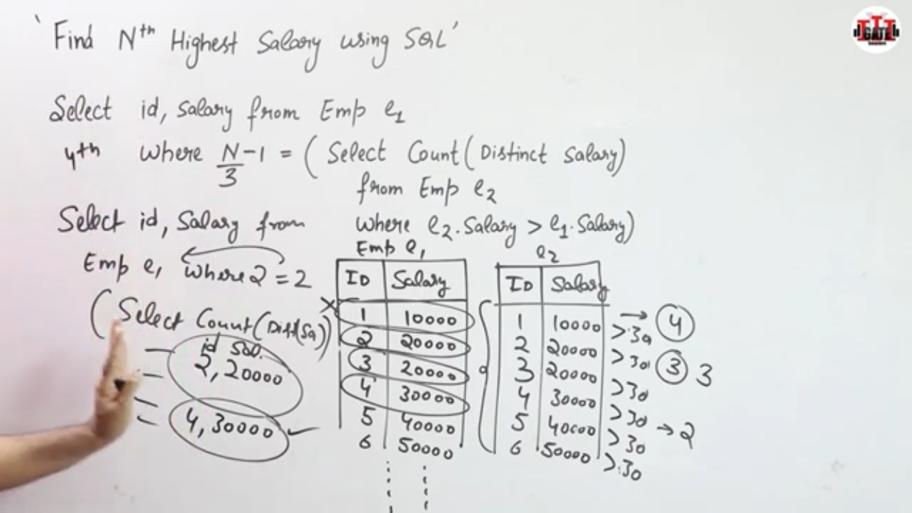 'Find Nth Highest Salary using SQL'
Select id, Salary from Emp e1
4th where N-1 = ( Select Count( Distinct Salary)
3
from Emp e2
Select id, Salary from where e2.Salary > e1.Salary)
Emp e1 where 2 = 2
(Select Count(Dist(Sa)
id Sal.
2, 20000
4, 30000
Emp e1
ID Salary
1 10000
2 20000
3 20000
4 30000
5 40000
6 50000
e2
ID Salary
1 10000 → 4
2 20000 >30
3 20000 >30 3 3
4 30000 >30
5 40000 >30 → 2
6 50000 >30
>30
GATE